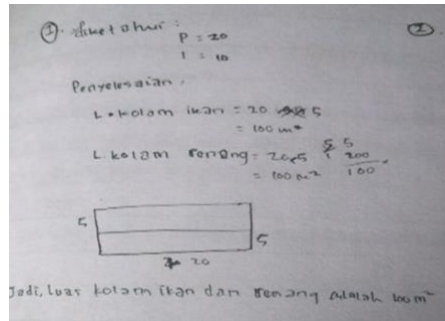 ① diketahui :
②.
P = 20
l = 10
Penyelesaian.
L. kolam ikan = 20 5
= 100 m²
L. kolam renang = 20x5
= 100 m²
5
200
100
5
5
20
Jadi, luas kolam ikan dan renang adalah 100 m²